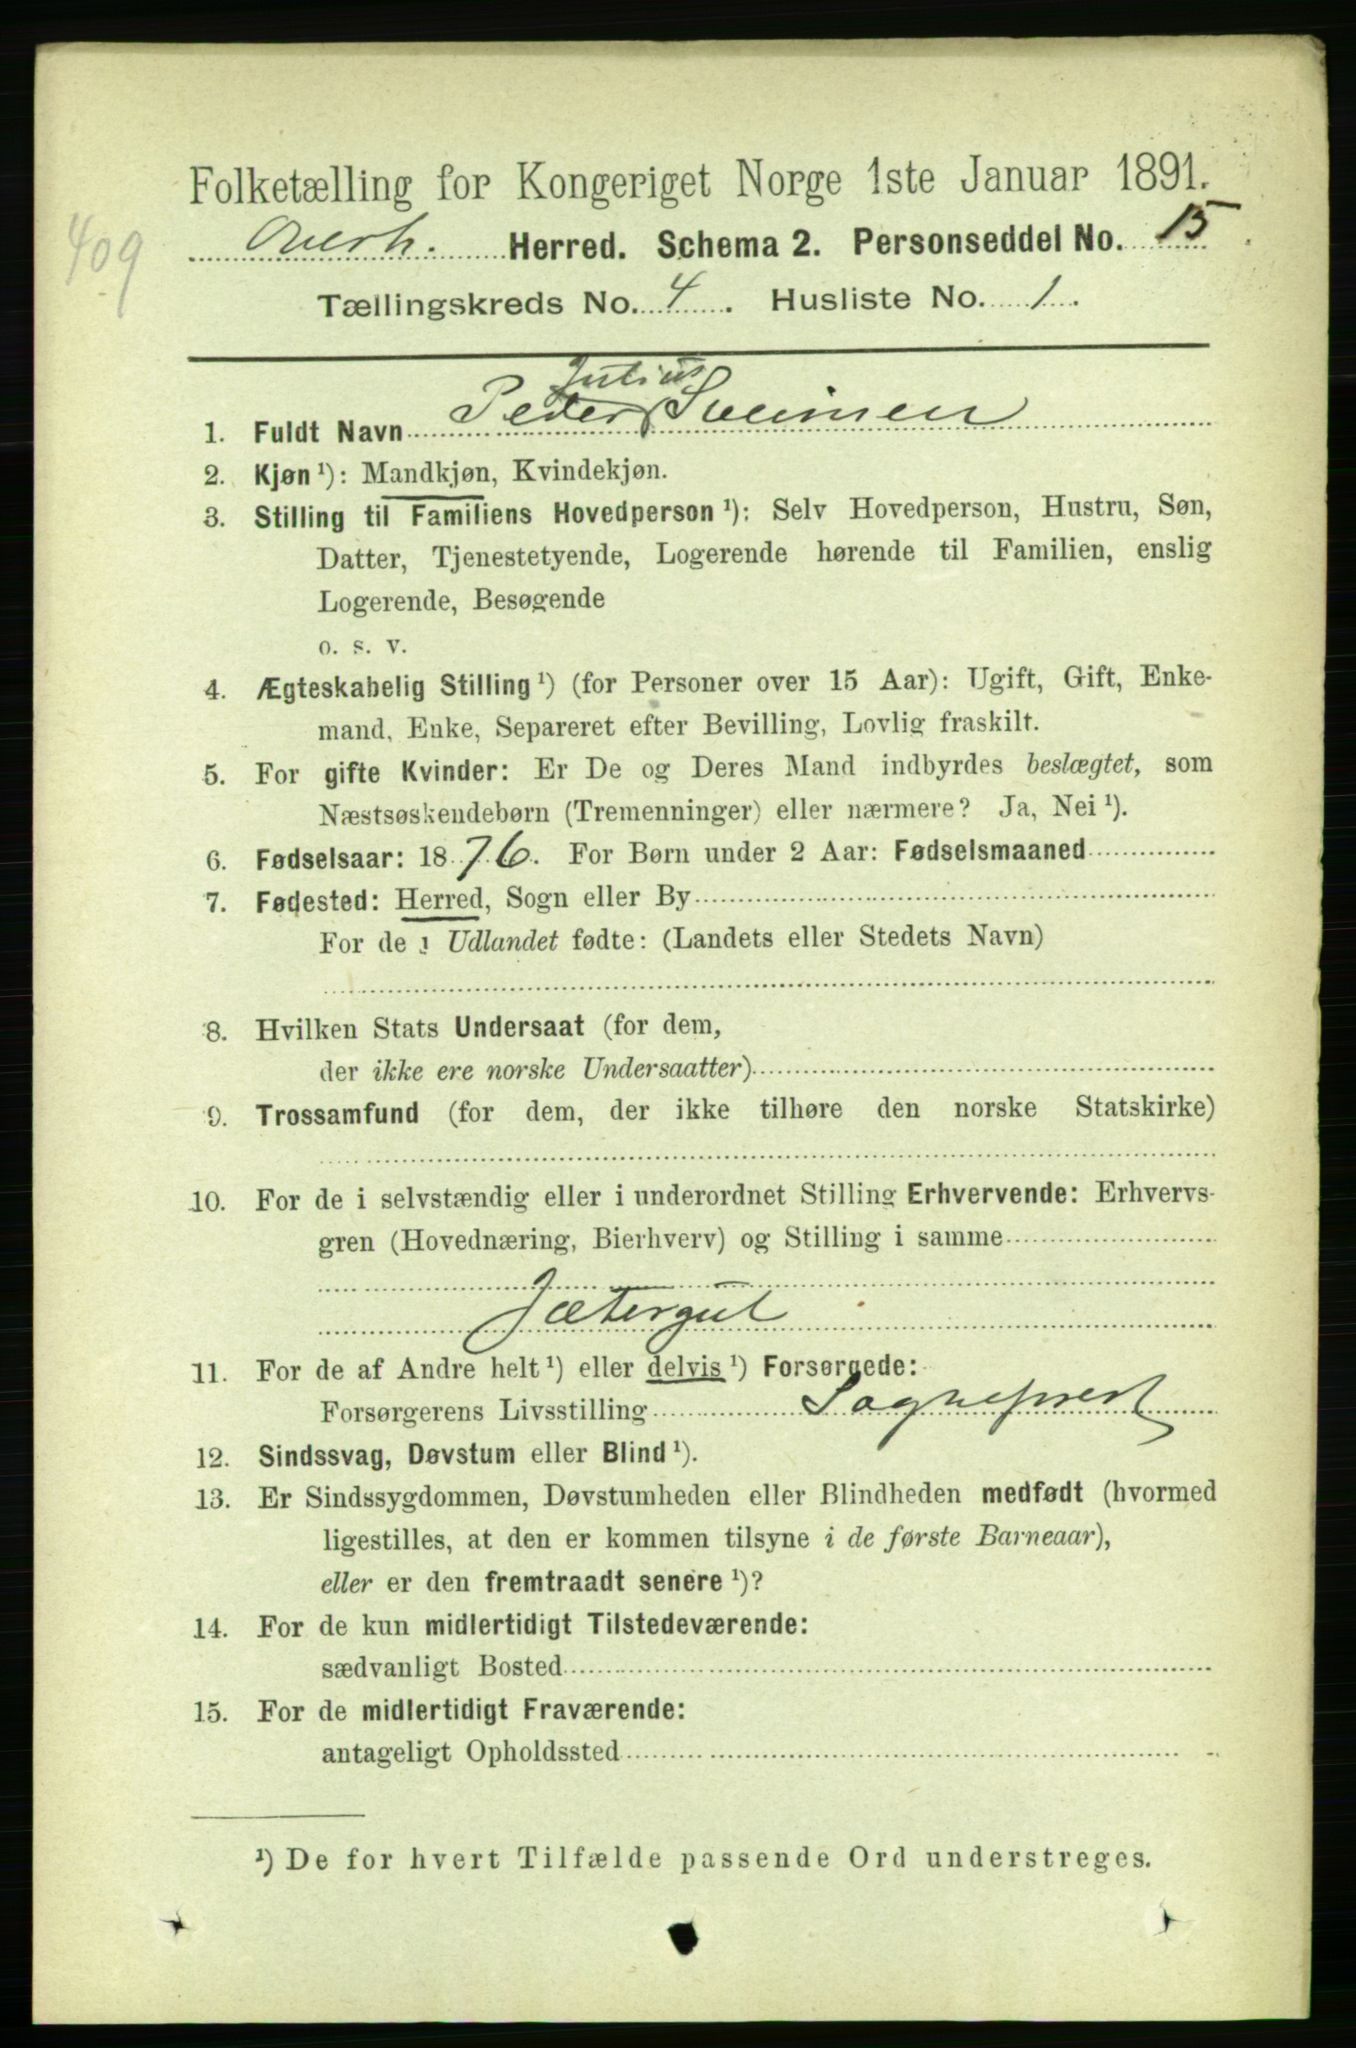 Folketælling for Kongeriget Norge 1ste Januar 1891.
409
Overh. Herred. Schema 2. Personseddel No. 15.
Tællingskreds No. 4. Husliste No. 1.
Julius
1. Fuldt Navn Peder
2. Kjøn ¹): Mandkjøn, Kvindekjøn.
3. Stilling til Familiens Hovedperson ¹): Selv Hovedperson, Hustru, Søn,
Datter, Tjenestetyende, Logerende hørende til Familien, enslig
Logerende, Besøgende
o. s. v.
4. Ægteskabelig Stilling ¹) (for Personer over 15 Aar): Ugift, Gift, Enke-
mand, Enke, Separeret efter Bevilling, Lovlig fraskilt.
5. For gifte Kvinder: Er De og Deres Mand indbyrdes beslægtet, som
Næstsøskendebørn (Tremenninger) eller nærmere? Ja, Nei ¹).
6. Fødselsaar: 1876. For Børn under 2 Aar: Fødselsmaaned
7. Fødested: Herred, Sogn eller By
For de i Udlandet fødte: (Landets eller Stedets Navn)
8. Hvilken Stats Undersaat (for dem,
der ikke ere norske Undersaatter)
9. Trossamfund (for dem, der ikke tilhøre den norske Statskirke)
10. For de i selvstændig eller i underordnet Stilling Erhvervende: Erhvervs-
gren (Hovednæring, Bierhverv) og Stilling i samme
Jætergut
11. For de af Andre helt ¹) eller delvis ¹) Forsørgede:
Forsørgerens Livsstilling Sogneprest
12. Sindssvag, Døvstum eller Blind ¹).
13. Er Sindssygdommen, Døvstumheden eller Blindheden medfødt (hvormed
ligestilles, at den er kommen tilsyne i de første Barneaar),
eller er den fremtraadt senere ¹)?
14. For de kun midlertidigt Tilstedeværende:
sædvanligt Bosted
15. For de midlertidigt Fraværende:
antageligt Opholdssted
¹) De for hvert Tilfælde passende Ord understreges.